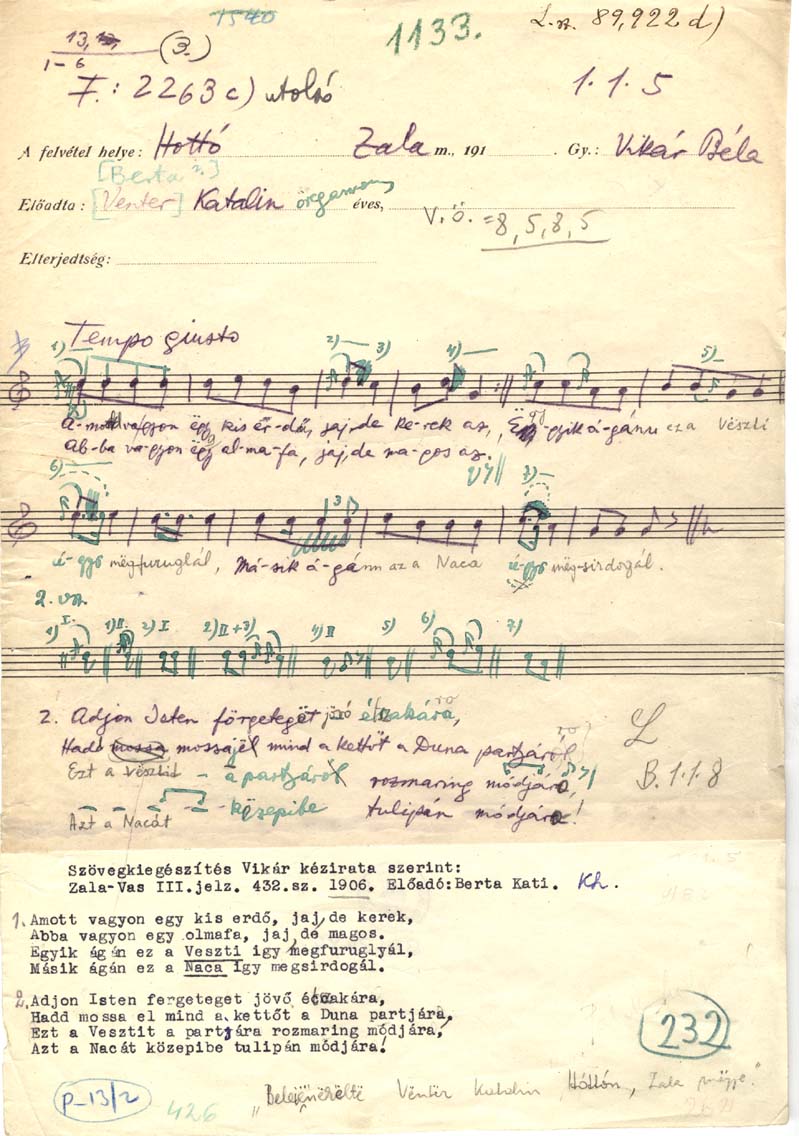 1540
L. sz. 89,922 d)
13,
1-6
(3.)
1133.
F.: 2263 c) utolsó
1.1.5
A felvétel helye: Hottó Zala m., 191 . Gy.: Vikár Béla
[Berta?]
Előadta: [Venter] Katalin éves,
V.ö. = 8, 5, 8, 5
Elterjedtség:
Tempo giusto
1) 2) 3) 4) 5)
kis ër-dű, jaj, de ke-rek az, á-gánn ez a Vëszti
Ab-ba va-gyon ëgy al-ma-fa, jaj, de ma-gos az.
6) 3 7)
í-gyö mëgfuruglál, Má-sik á-gánn az a Naca í-gyö mëg-sirdogál.
2. vsz.
1) I. 1) II. 2) I 2) II + 3) 4) II 5) 6) 7)
2. Adjon Isten förgeteget jövő
Hadd mossa mossajël mind a kettőt a Duna partjáról
Ezt a vësztit - a partjáról rozmaring módjára,
Azt a Nacát - közepibe tulipán módjára!
L
B. 1.1.8
Szövegkiegészítés Vikár kézirata szerint:
Zala-Vas III.jelz. 432.sz. 1906. Előadó:Berta Kati. Kh.
1. Amott vagyon egy kis erdő, jaj, de kerek,
Abba vagyon egy olmafa, jaj, de magos.
Egyik ágán ez a Veszti igy megfuruglyál,
Másik ágán ez a Naca így megsirdogál.
2. Adjon Isten fergeteget jövő éccakára,
Hadd mossa el mind a kettőt a Duna partjára,
Ezt a Vesztit a partjára rozmaring módjára,
Azt a Nacát közepibe tulipán módjára!
232
p-13/2
426
Vëntër Katalin Hóttón, Zala mëgye."